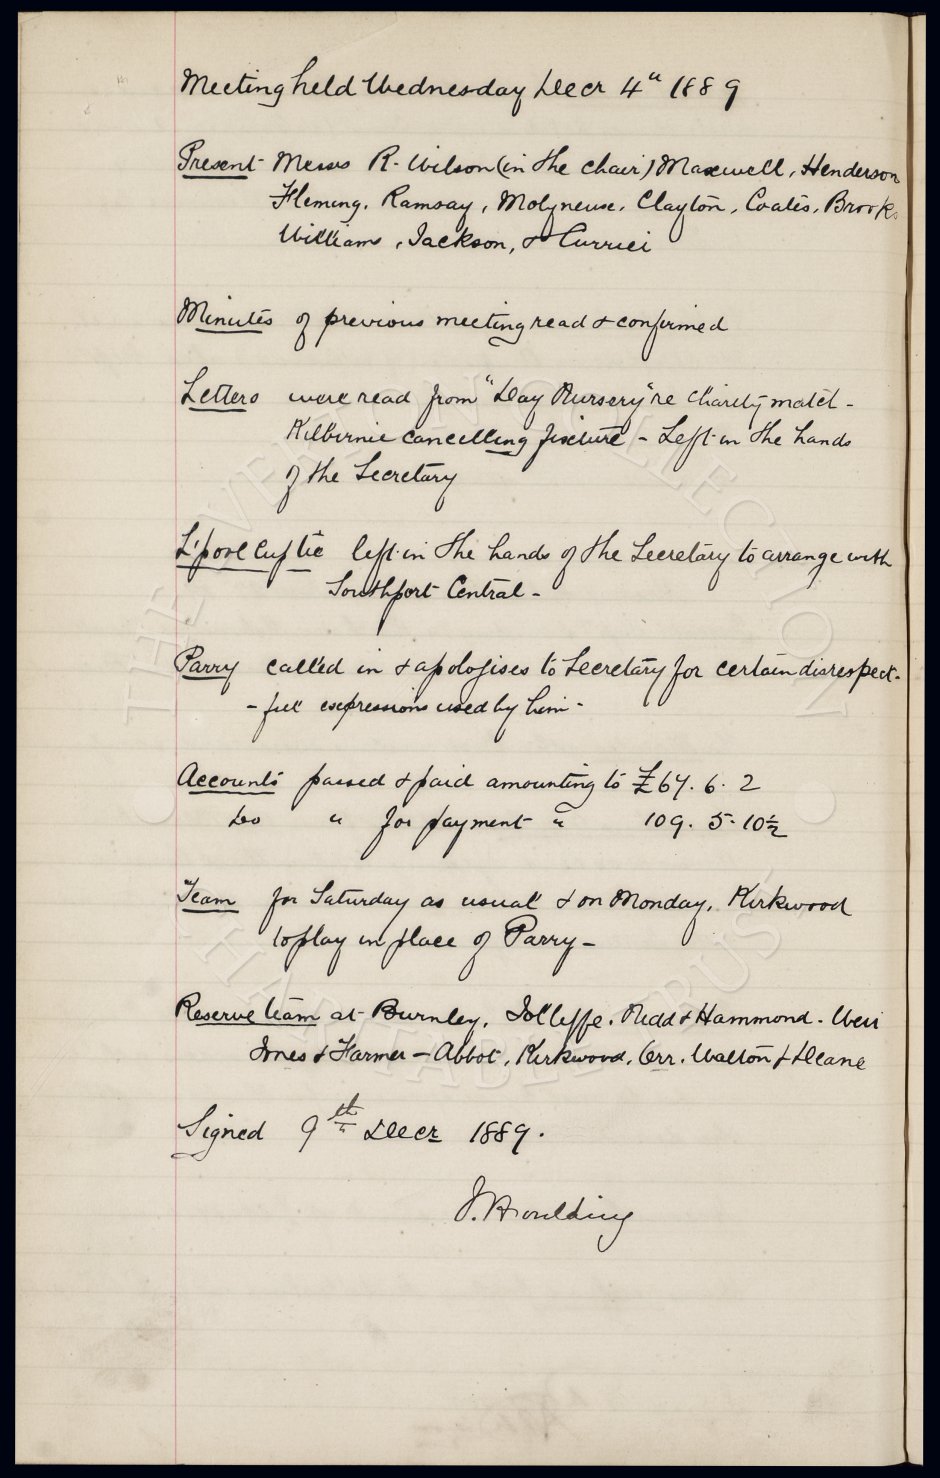 Meeting held Wednesday Decr 4" 1889
Present Messrs R. Wilson (in the chair) Maxwell, Henderson
Fleming, Ramsay, Molyneux, Clayton, Coates, Brooks
Williams, Jackson, & Currier
Minutes of previous meeting read & confirmed
Letters were read from "Day Nursery" re charity match -
Kilbirnie cancelling fixture - Left in the hands
of the Secretary
L'pool Cup tie left in the hands of the Secretary to arrange with
Southport Central -
Parry called in & apologises to Secretary for certain disrespect-
- ful expressions used by him -
Accounts passed & paid amounting to £67. 6. 2
Do " for payment " 109. 5. 10½
Team for Saturday as usual & on Monday, Kirkwood
to play in place of Parry -
Reserve team at Burnley, Jolliffe, Nidd & Hammond - Weir
Jones & Farmer - Abbot, Kirkwood, Orr, Walton & Deane
Signed 9th Decr 1889.
J. Houlding
THE EVERTON COLLECTION
CHARITABLE TRUST